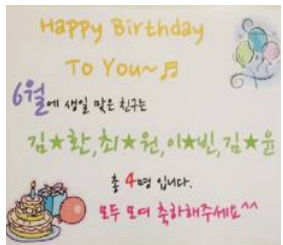 Happy Birthday
To You~♬
6월에 생일 맞은 친구는
김★환,최★원,이★빈,김★윤
총 4명 입니다.
모두 모여 축하해주세요^^